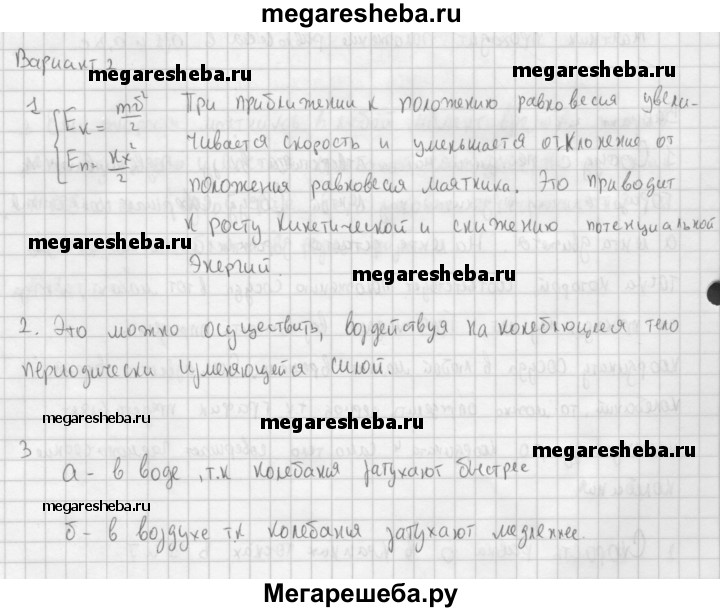 megaresheba.ru
Вариант 2
megaresheba.ru megaresheba.ru
1 { Eк = mv²/2 При приближении к положению равновесия увели-
Eп = kx²/2 чивается скорость и уменьшается отклонение от
положения равновесия маятника. Это приводит
к росту кинетической и снижению потенциальной
megaresheba.ru
энергий.
megaresheba.ru
2. Это можно осуществить, воздействуя на колеблющееся тело
периодически изменяющейся силой.
megaresheba.ru
megaresheba.ru
3
а - в воде, т.к колебания затухают быстрее
б - в воздухе т.к колебания затухают медленнее.
Мегарешеба.ру